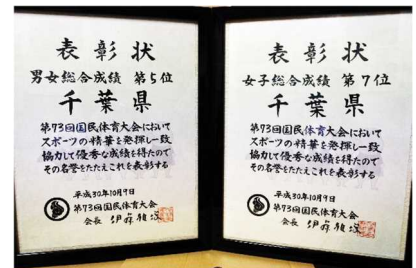 表彰状
男女総合成績 第5位
千葉県
第73回国民体育大会において
スポーツの精華を発揮し一致
協力して優秀な成績を得たので
その名誉をたたえこれを表彰する
平成30年10月9日
第73回国民体育大会
会長
表彰状
女子総合成績 第7位
千葉県
第73回国民体育大会において
スポーツの精華を発揮し一致
協力して優秀な成績を得たので
その名誉をたたえこれを表彰する
平成30年10月9日
第73回国民体育大会
会長